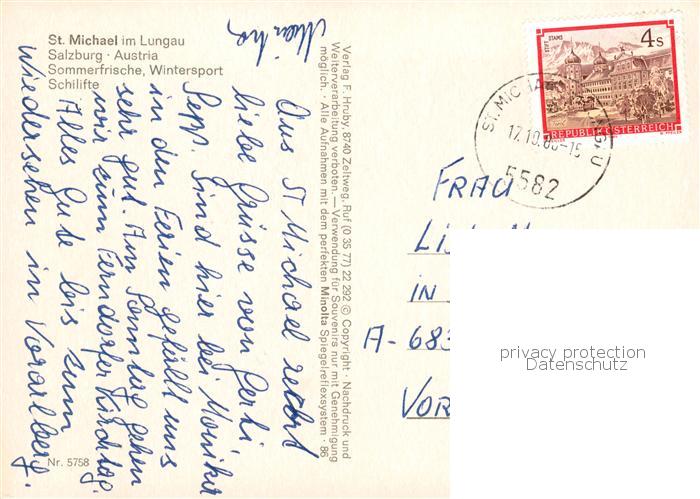 St. Michael im Lungau
Salzburg · Austria
Sommerfrische, Wintersport
Schilifte
Aus St Michael recht
liebe Grüsse von Gerti
Sepp. Sind hier bei Monika
in den Ferien gefällt uns
sehr gut. Am Sonntag gehen
wir zum Ferndorfer Kirchtag.
Alles Gute bis zum
wiedersehen in Vorarlberg.
Nr. 5758
Verlag F. Hruby, 8740 Zeltweg, Ruf (0 35 77) 22 292 © Copyright · Nachdruck und
Weiterverarbeitung verboten. — Verwendung für Souvenirs nur mit Genehmigung
möglich. · Alle Aufnahmen mit dem perfekten Minolta Spiegelreflexsystem · 86
STIFT STAMS
4 S
REPUBLIK ÖSTERREICH
ST. MICHAEL
17.10.86-15
5582
FRAU
IN
A-683
VOR
privacy protection
Datenschutz